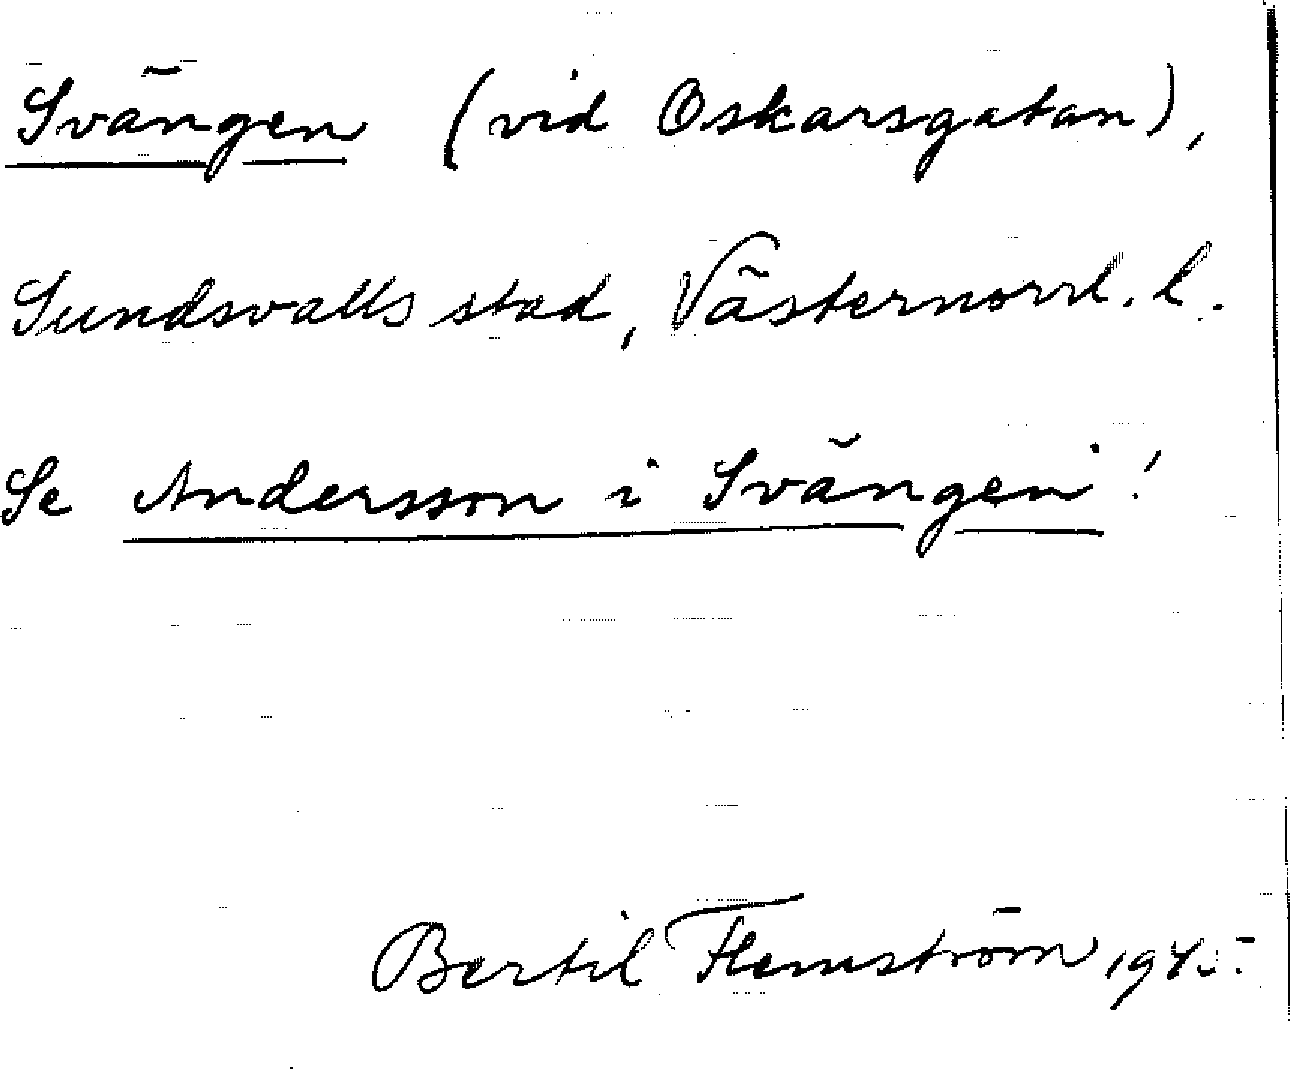 Svängen (vid Oskarsgatan),
Sundsvalls stad, Västernorrl. l.
Se Andersson i Svängen!
Bertil Flemström 1945.